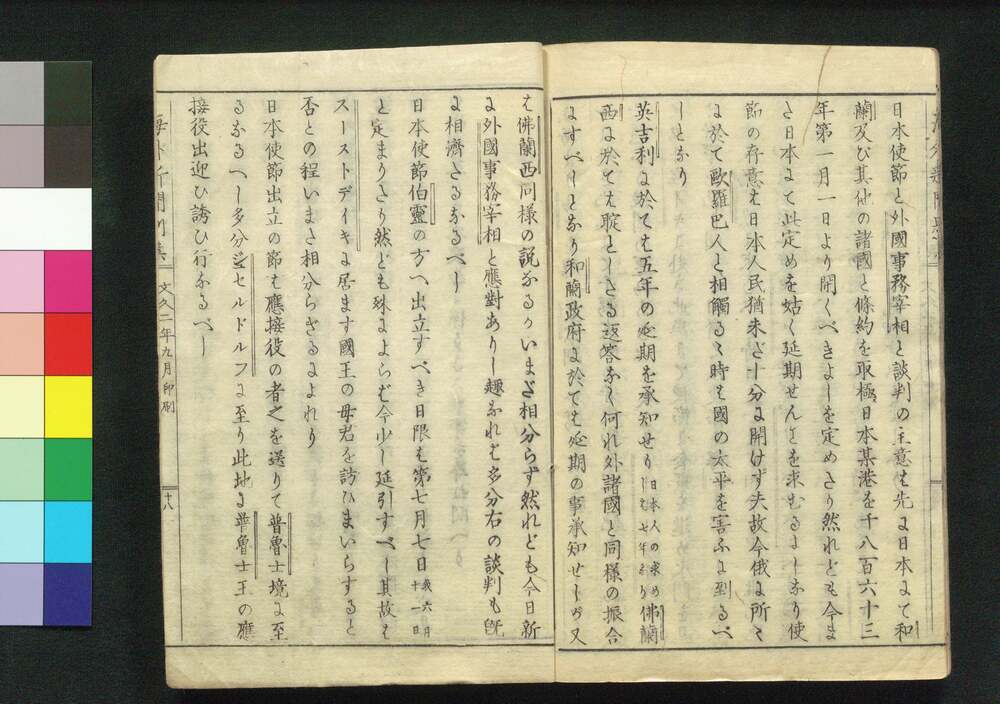 日本使節と外國事務宰相と談判の主意は先に日本にて和
蘭及び其他の諸國と條約を取極日本某港を千八百六十三
年第一月一日より開くべきよしを定めたり然れども今ま
た日本にて此定めを姑く延期せんことを求むるよしなり使
節の存意は日本人民猶未だ十分に開けず夫故今俄に所々
に於て歐羅巴人と相觸るゝ時は國の太平を害ふに到るべ
しとなり
英吉利に於ては五年の延期を承知せり日本人の求めしは七年なり佛蘭
西に於ては聢としたる返答なく何れ外諸國と同様の振合
になすべしとなり和蘭政府に於ても延期の事承知せしが又
は佛蘭西同様の説なるかいまだ相分らず然れども今日新
に外國事務宰相と應對ありし趣なれは多分右の談判も既
に相濟たるなるべし
日本使節伯靈の方へ出立すべき日限は第七月七日我六月十一日
と定まりたり然ども殊によらば今少し延引すべし其故は
スーストデイキに居ます國王の母君を訪ひまいらすると
否との程いまた相分らさるによれり
日本使節出立の節は應接役の者之を送りて普魯士境に至
るなるへし多分セルドルフに至り此地に普魯士王の應
接役出迎ひ誘ひ行なるべし
文久二年九月印刷
十八